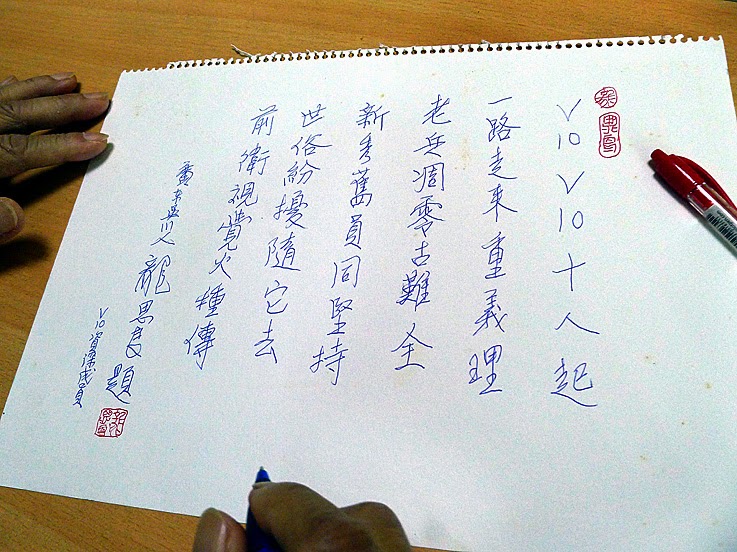 V10V10十人起
一路走來重義理
老兵凋零古難全
新秀舊員同堅持
世俗紛擾隨它去
前衛視覺火種傳
龍思良題
V10資深成員